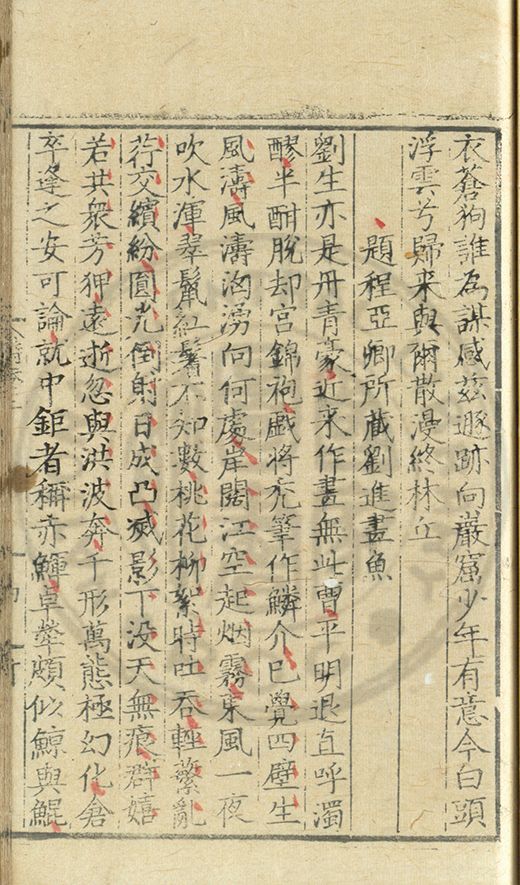 衣蒼狗誰為謀感茲遯跡向巖窟少年有意今白頭
浮雲兮歸来與爾散漫終林丘
題程亞卿所藏劉進畫魚
劉生亦是丹青豪近来作畫無此曹平明退直呼濁
醪半酣脫却宮錦袍戯將禿筆作鱗介巳覺四壁生
風濤風濤洶湧向何處岸闊江空起烟霧東風一夜
吹水渾翠鬛紅鬐不知數桃花柳絮時吐吞輕蘩亂
荇交繽紛圓光倒射日成凸滅影下没天無痕群嬉
若共衆芳狎遠逝忽與洪波奔千形萬態極幻化倉
卒逢之安可論就中鉅者稱赤鯶卓犖頗似鯨與鯤